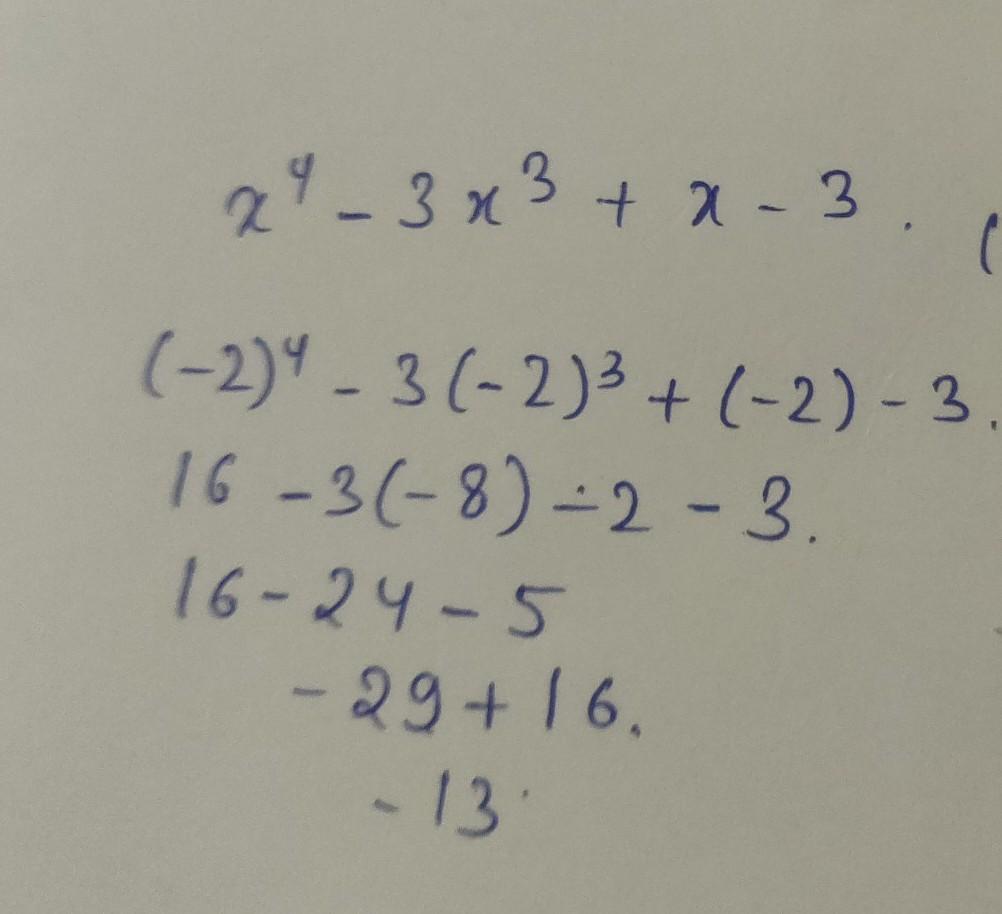 x⁴ - 3x³ + x - 3 . (
(-2)⁴ - 3(-2)³ + (-2) - 3.
16 - 3(-8) - 2 - 3.
16 - 24 - 5
- 29 + 16.
- 13